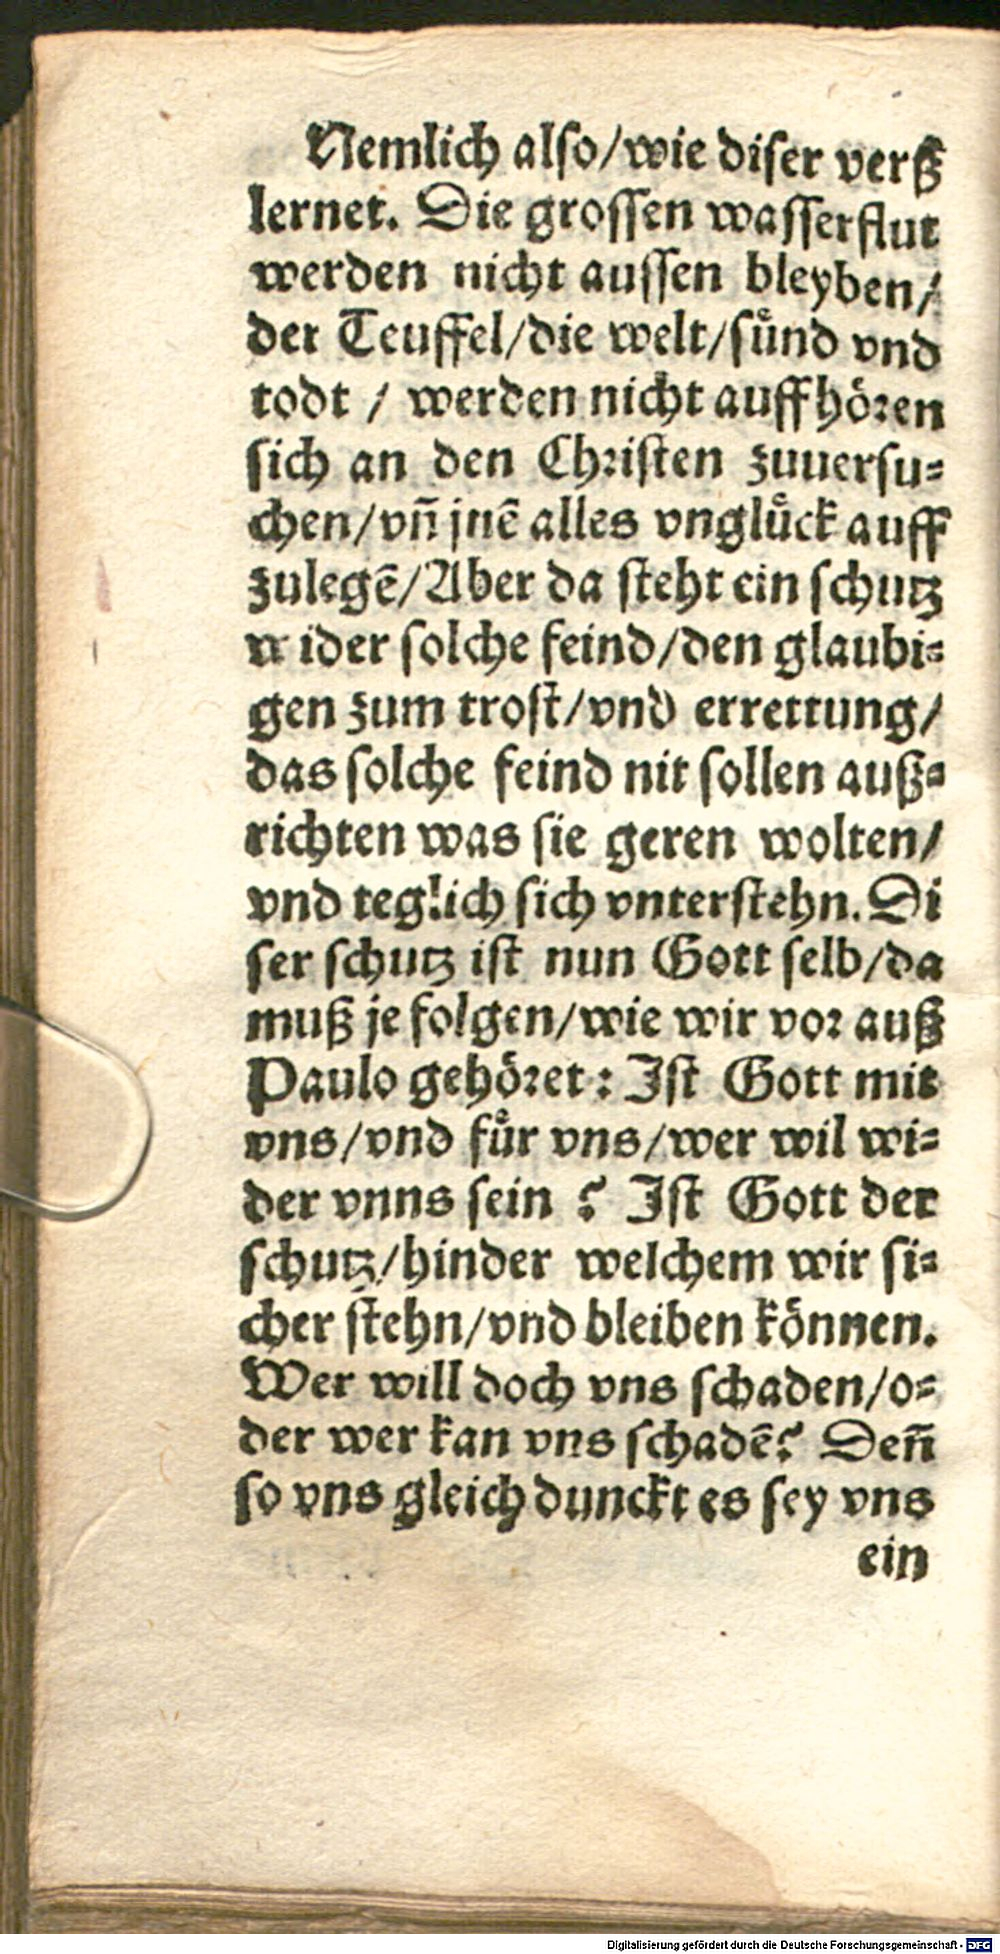 Nemlich also/wie diser verß
lernet. Die grossen wasserflut
werden nicht aussen bleyben/
der Teuffel/die welt/suͤnd vnd
todt / werden nicht auffhoͤren
sich an den Christen zuuersu⸗
chen/vñ jnē alles vngluͤck auff
zulegē/Aber da steht ein schutz
wider solche feind/den glaubi⸗
gen zum trost/vnd errettung/
das solche feind nit sollen auß⸗
richten was sie geren wolten/
vnd teglich sich vnterstehn. Di
ser schutz ist nun Gott selb/da
muß je folgen/wie wir vor auß
Paulo gehoͤret: Ist Gott mit
vns/vnd fuͤr vns/wer wil wi⸗
der vnns sein ? Ist Gott der
schutz/hinder welchem wir si⸗
cher stehn/vnd bleiben koͤnnen.
Wer will doch vns schaden/o⸗
der wer kan vns schadē? Deñ
so vns gleich dunckt es sey vns
ein
Digitalisierung gefördert durch die Deutsche Forschungsgemeinschaft - DFG